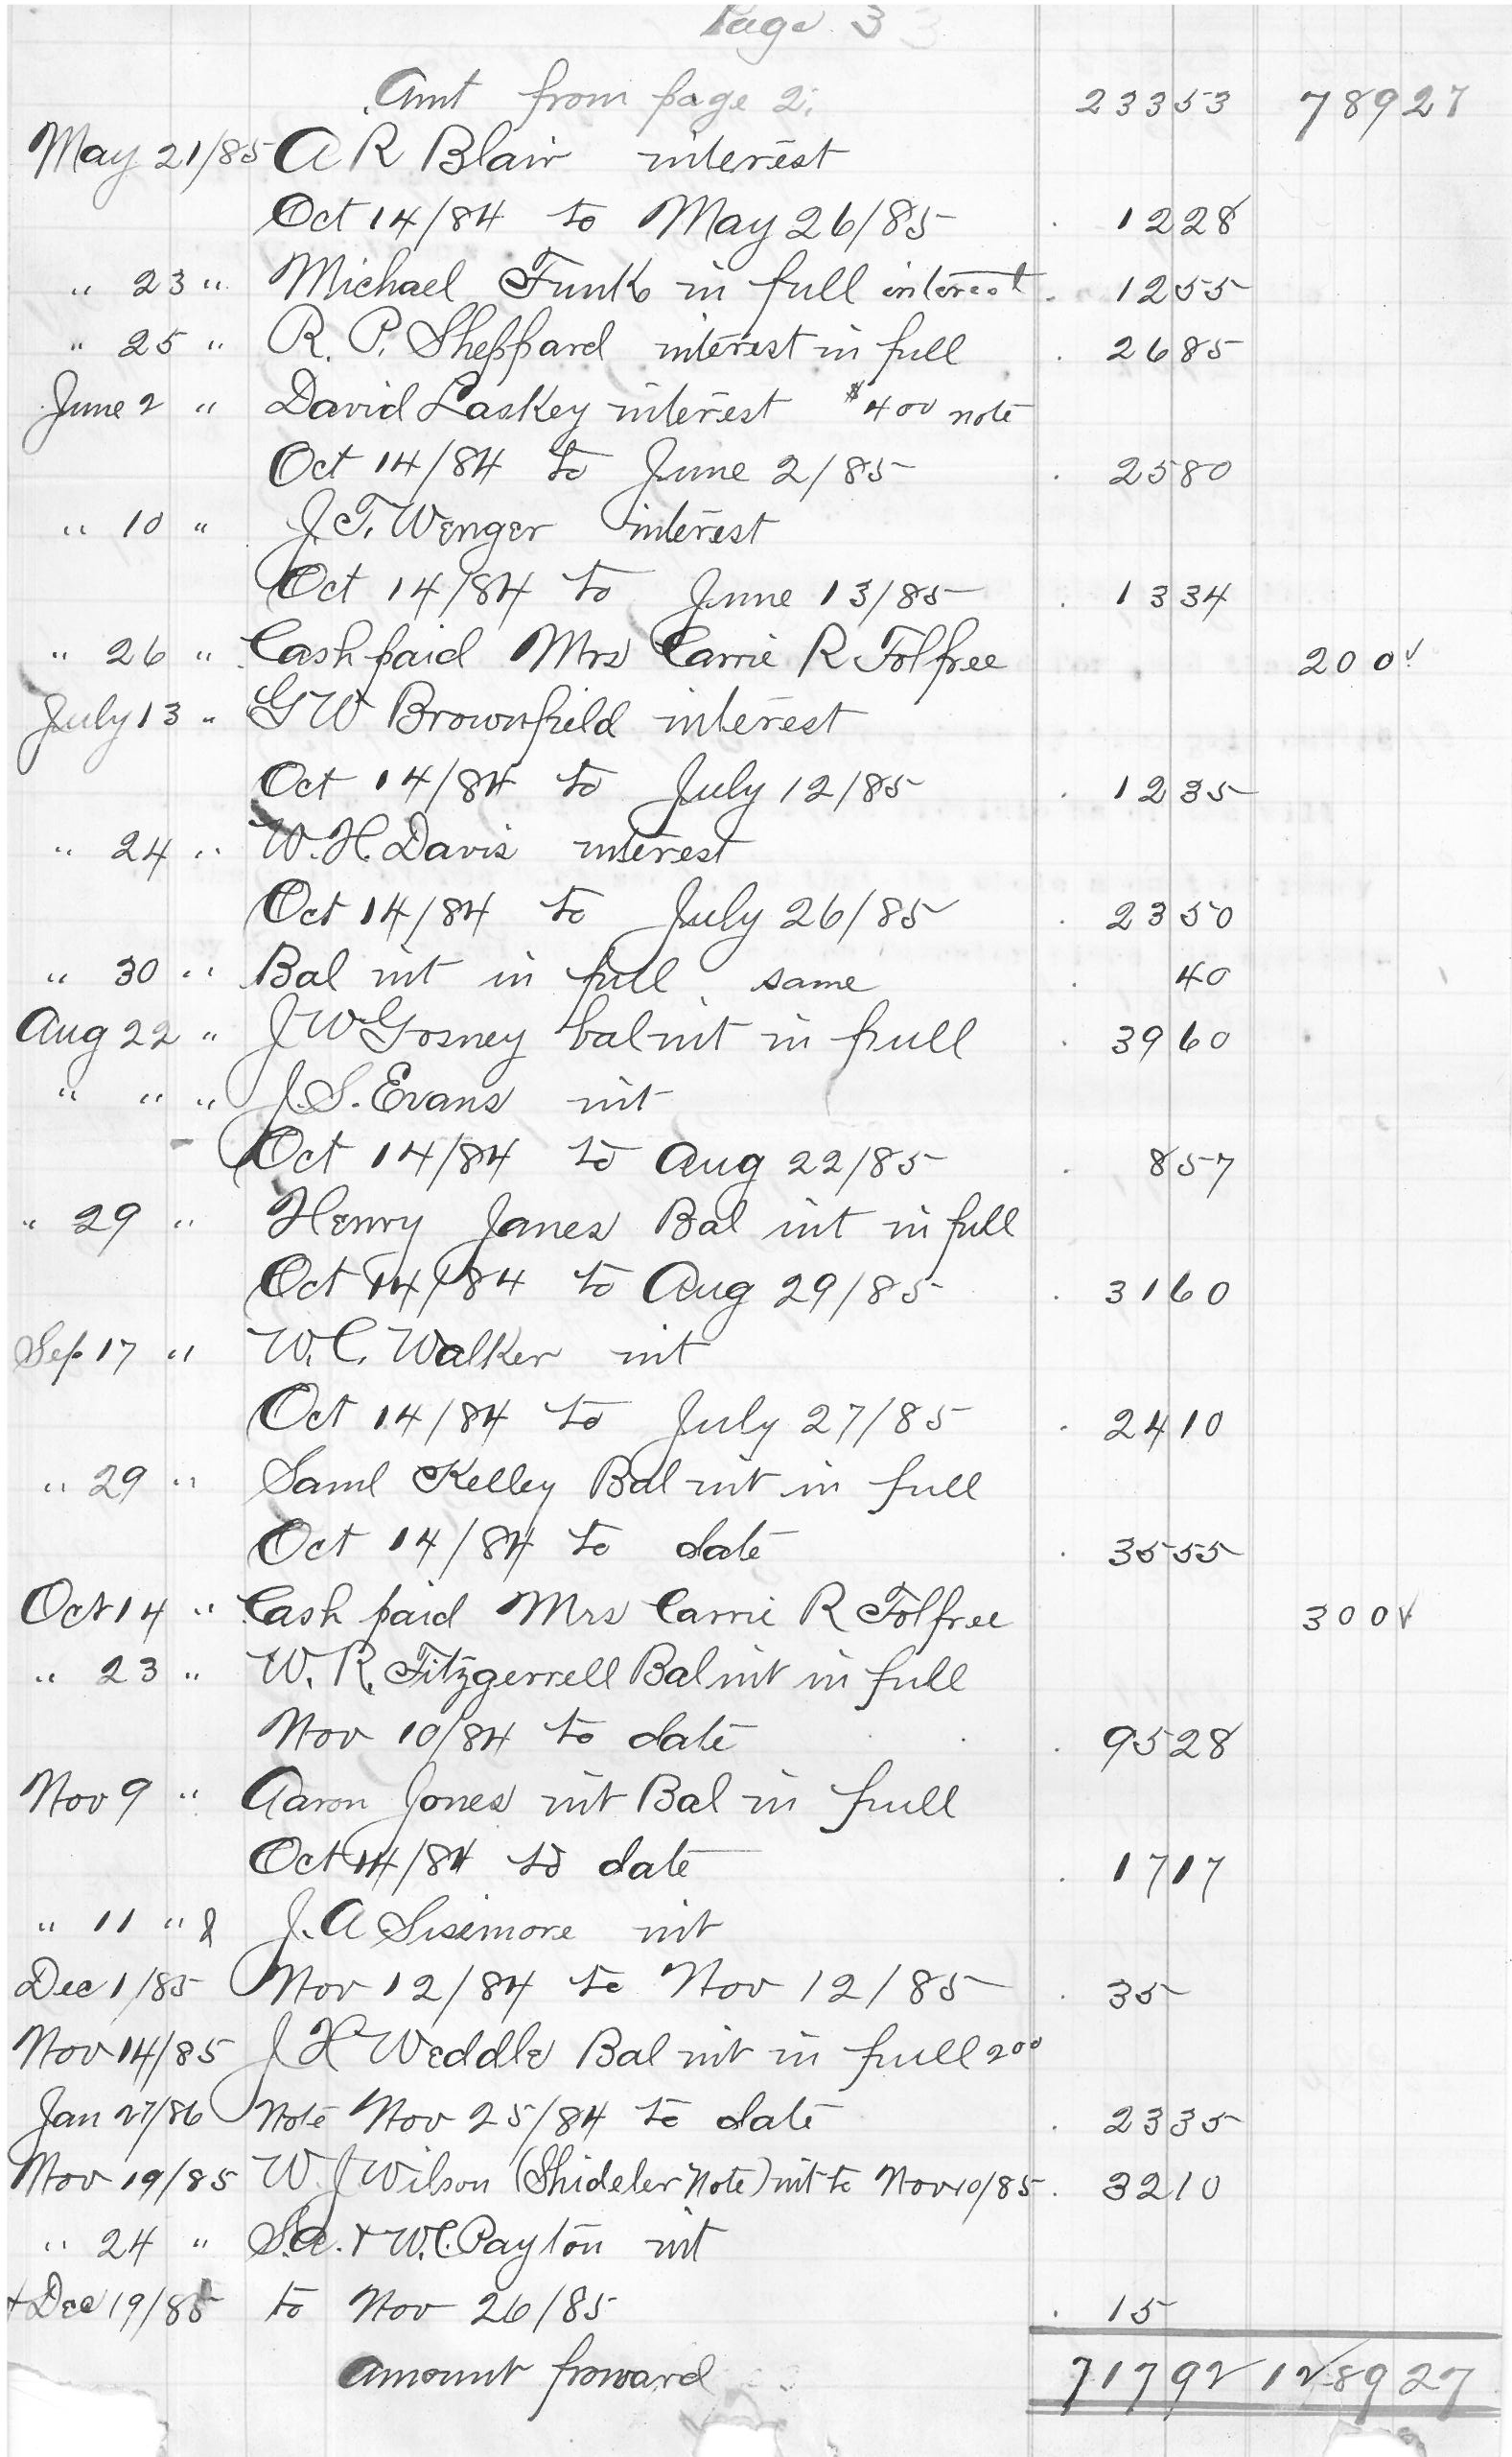 Page 3
Amt from page 2. 233 53 789 27
May 21/85 A R Blair interest
Oct 14/84 to May 26/85 12 28
" 23 " Michael Funk in full interest 12 55
" 25 " R. P. Sheppard interest in full 26 85
June 2 " David Laskey interest $400 note
Oct 14/84 to June 2/85 25 80
" 10 " J. T. Wenger interest
Oct 14/84 to June 13/85 13 34
" 26 " Cash paid Mrs Carrie R Tolfree 200
July 13 " G W Brownfield interest
Oct 14/84 to July 12/85 12 35
" 24 " W. H. Davis interest
Oct 14/84 to July 26/85 23 50
" 30 " Bal int in full same 40
Aug 22 " J W Gosney bal int in full 39 60
" " " J. S. Evans int
Oct 14/84 to Aug 22/85 8 57
" 29 " Henry Janes Bal int in full
Oct 14/84 to Aug 29/85 31 60
Sep 17 " W. C. Walker int
Oct 14/84 to July 27/85 24 10
" 29 " Saml Kelley Bal int in full
Oct 14/84 to date 35 55
Oct 14 " Cash paid Mrs Carrie R Tolfree 300
" 23 " W. R. Fitzgerrell Bal int in full
Nov 10/84 to date 95 28
Nov 9 " Aaron Jones int Bal in full
Oct 14/84 to date 17 17
" 11 " & J. A Sisimore int
Dec 1/85 Nov 12/84 to Nov 12/85 35
Nov 14/85 J H Weddle Bal int in full 200
Jan 27/86 Note Nov 25/84 to date 23 35
Nov 19/85 W J Wilson (Shideler Note) int to Nov 10/85 32 10
" 24 " S. A. & W. C. Payton int
+ Dec 19/85 to Nov 26/85 15
Amount forward 717 92 1289 27